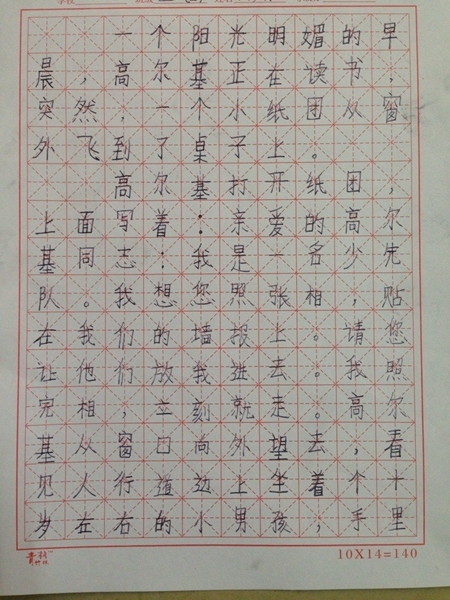 一个阳光明媚的早
晨，高尔基正在读书，
突然，一个小纸团从窗
外飞到了桌子上。
高尔基打开纸团，
上面写着：亲爱的高尔
基同志：我是一名少先
队。我想您照张相，贴
在我们的墙报上。请您
让他们放我进去。我照
完相，立刻就走。高尔
基从窗口尚外望去，看
见人行道边上坐着个十
岁左右的小男孩，手里
10X14=140